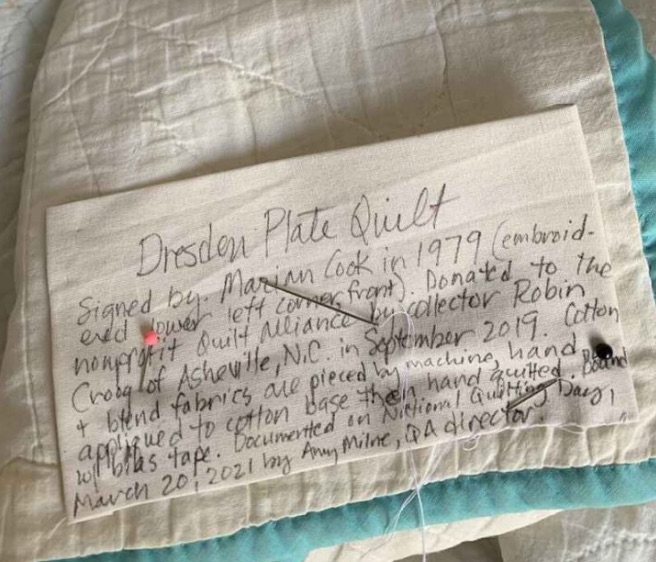 Dresden Plate Quilt
Signed by Marian Cook in 1979 (embroid-
ered lower left corner, front). Donated to the
nonprofit Quilt Alliance by collector Robin
Croog of Asheville, N.C. in September 2019. Cotton
+ blend fabrics are pieced by machine, hand
appliqued to cotton base then hand quilted. Bound
w/ bias tape. Documented on National Quilting Day,
March 20, 2021 by Amy Milne, QA director